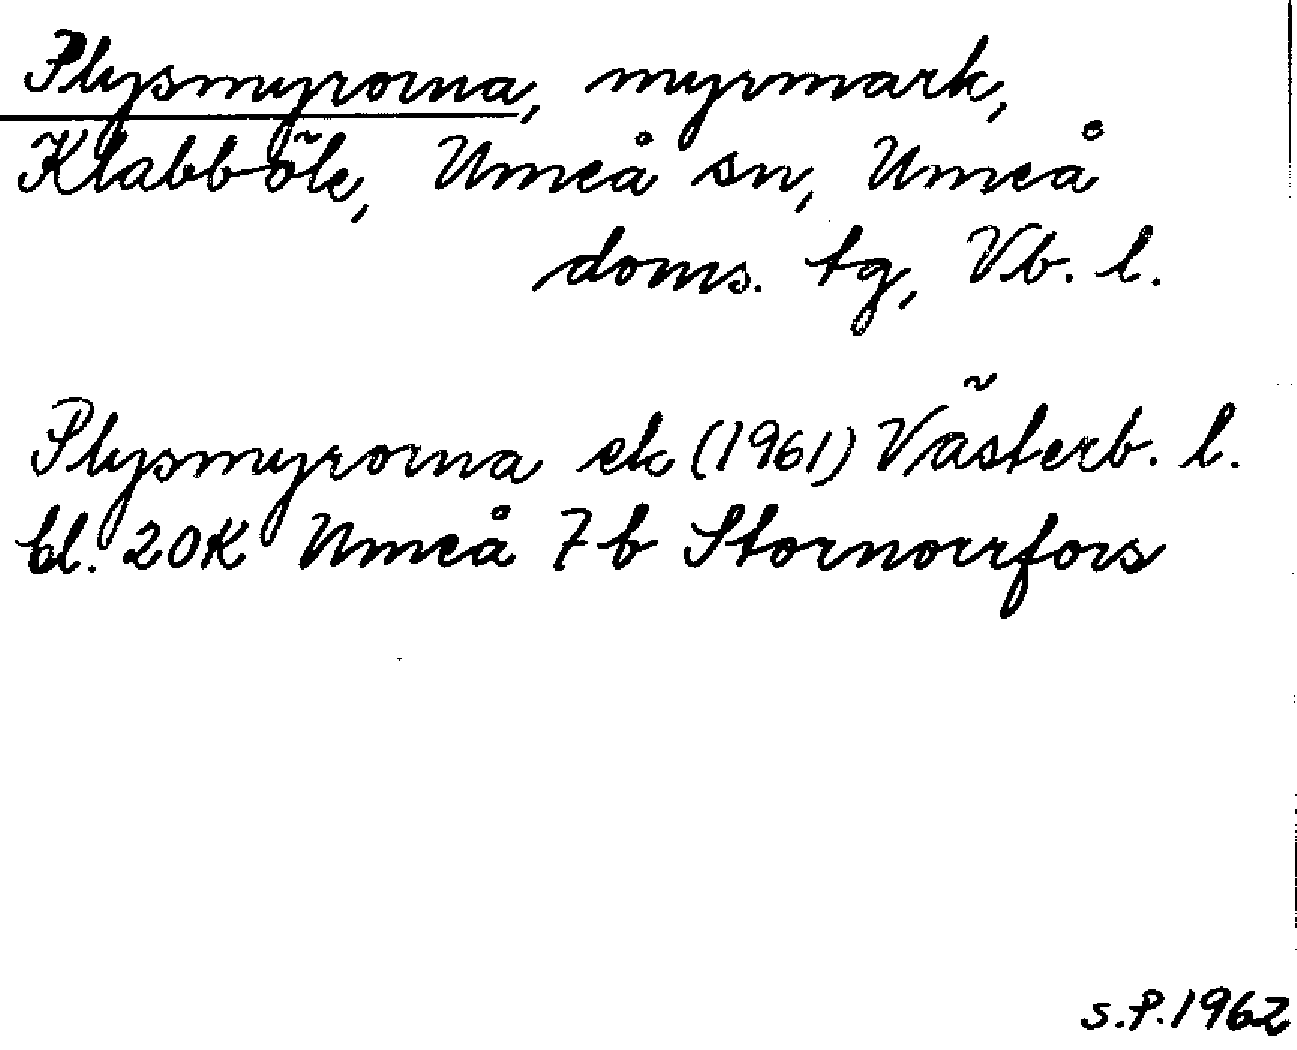 Plysmyrorna, myrmark,
Klabböle, Umeå sn, Umeå
doms. tg, Vb. l.
Plysmyrorna ek (1961) Västerb. l.
bl. 20K Umeå 7b Stornorrfors
S.P. 1962